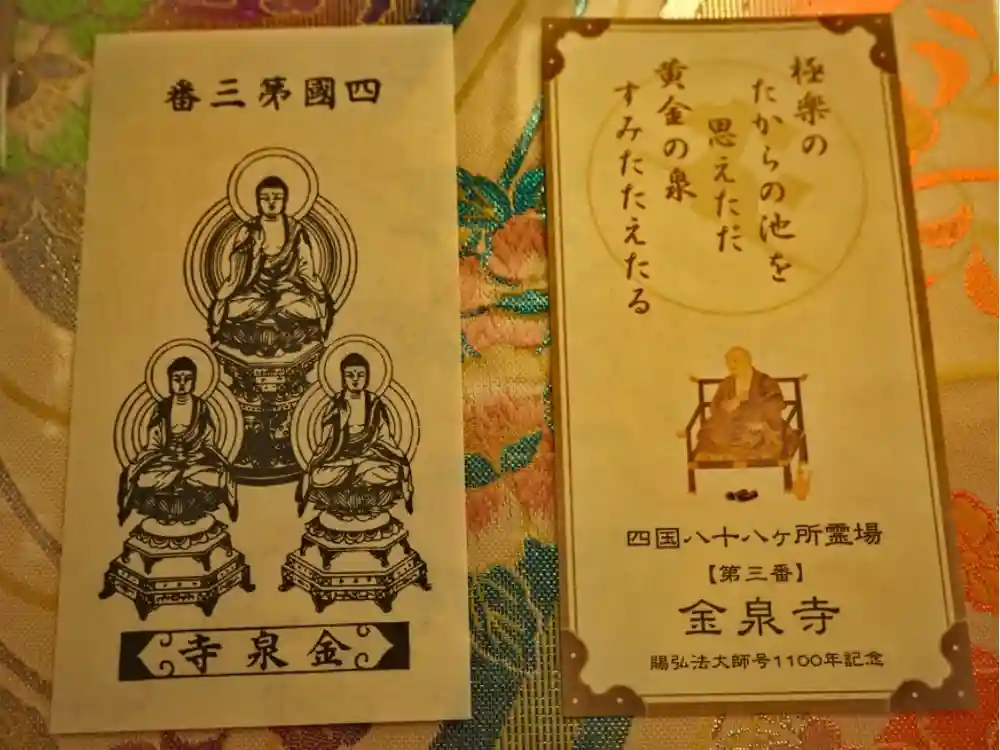 四國第三番
金泉寺
極楽の
たからの池を
思えただ
黄金の泉
すみたたえたる
四国八十八ヶ所霊場
【第三番】
金泉寺
賜弘法大師号1100年記念